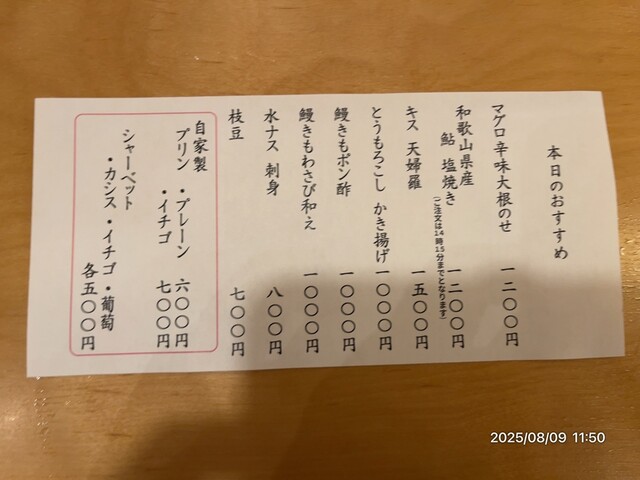 本日のおすすめ
マグロ 辛味大根のせ 一二〇〇円
和歌山県産
鮎 塩焼き 一二〇〇円
(ご注文は14時15分までとなります)
キス 天婦羅 一五〇〇円
とうもろこし かき揚げ 一〇〇〇円
鰻きもポン酢 一〇〇〇円
鰻きもわさび和え 一〇〇〇円
水ナス 刺身 八〇〇円
枝豆 七〇〇円
自家製
プリン ・プレーン 六〇〇円
・イチゴ 七〇〇円
シャーベット
・カシス・イチゴ・葡萄
各五〇〇円
2025/08/09 11:50